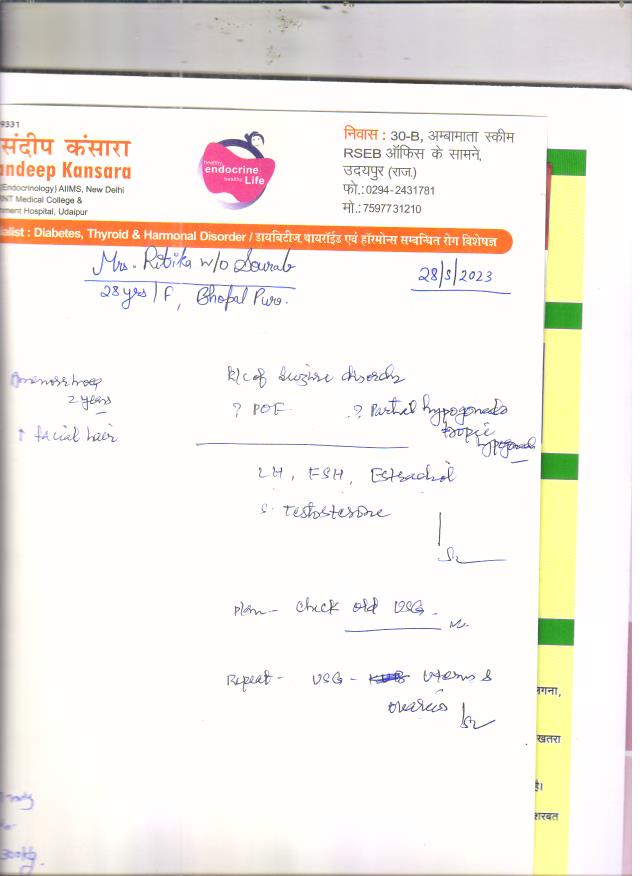 9331
संदीप कंसारा
andeep Kansara
(Endocrinology) AIIMS, New Delhi
RNT Medical College &
nment Hospital, Udaipur
healthy
endocrine
healthy Life
निवास : 30-B, अम्बामाता स्कीम
RSEB ऑफिस के सामने,
उदयपुर (राज.)
फो.:0294-2431781
मो.:7597731210
ialist : Diabetes, Thyroid & Harmonal Disorder / डायबिटीज, थायरॉईड एवं हॉरमोन्स सम्बन्धित रोग विशेषज्ञ
Mrs. Ritika w/o Sourab
28/5/2023
28 yrs / F, Bhopal Pura.
Amenorrhoea
2 years
↑ facial hair
k/c of seizure disorder
? POF ? Partial hypogonado
tropic
LH, FSH, Estradiol
S. Testosterone
Plan - Check old USG.
Repeat - USG - uterus &
ovaries
गना,
खतरा
है।
शरबत
300kg.